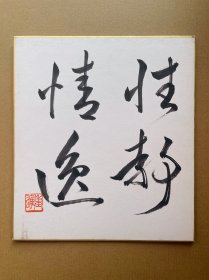 性静
情逸